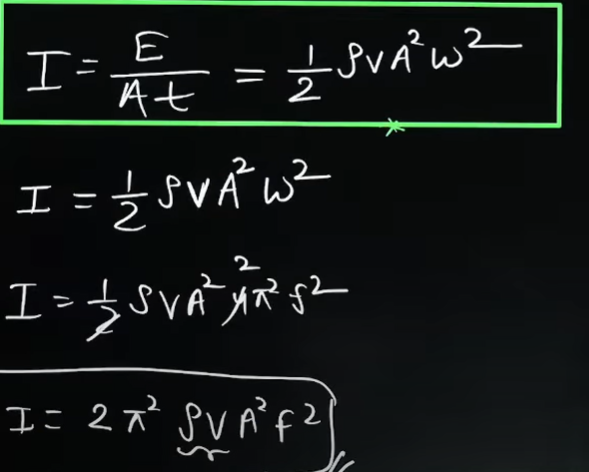 I = E/At = 1/2 ρvA²ω²
I = 1/2 ρvA²ω²
I = 1/2 ρvA² 4² π² f²
I = 2π² ρv A² f²